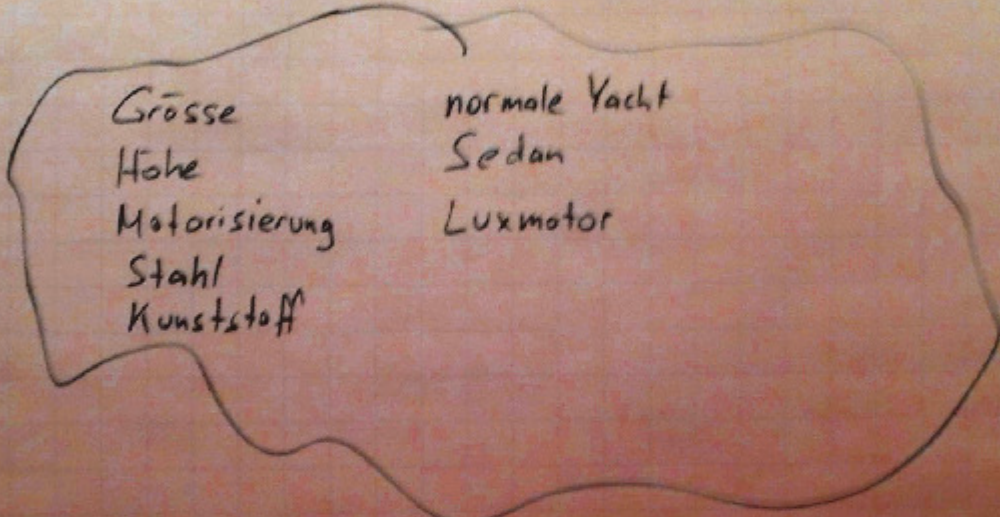 Grösse
Höhe
Motorisierung
Stahl
Kunststoff
normale Yacht
Sedan
Luxmotor